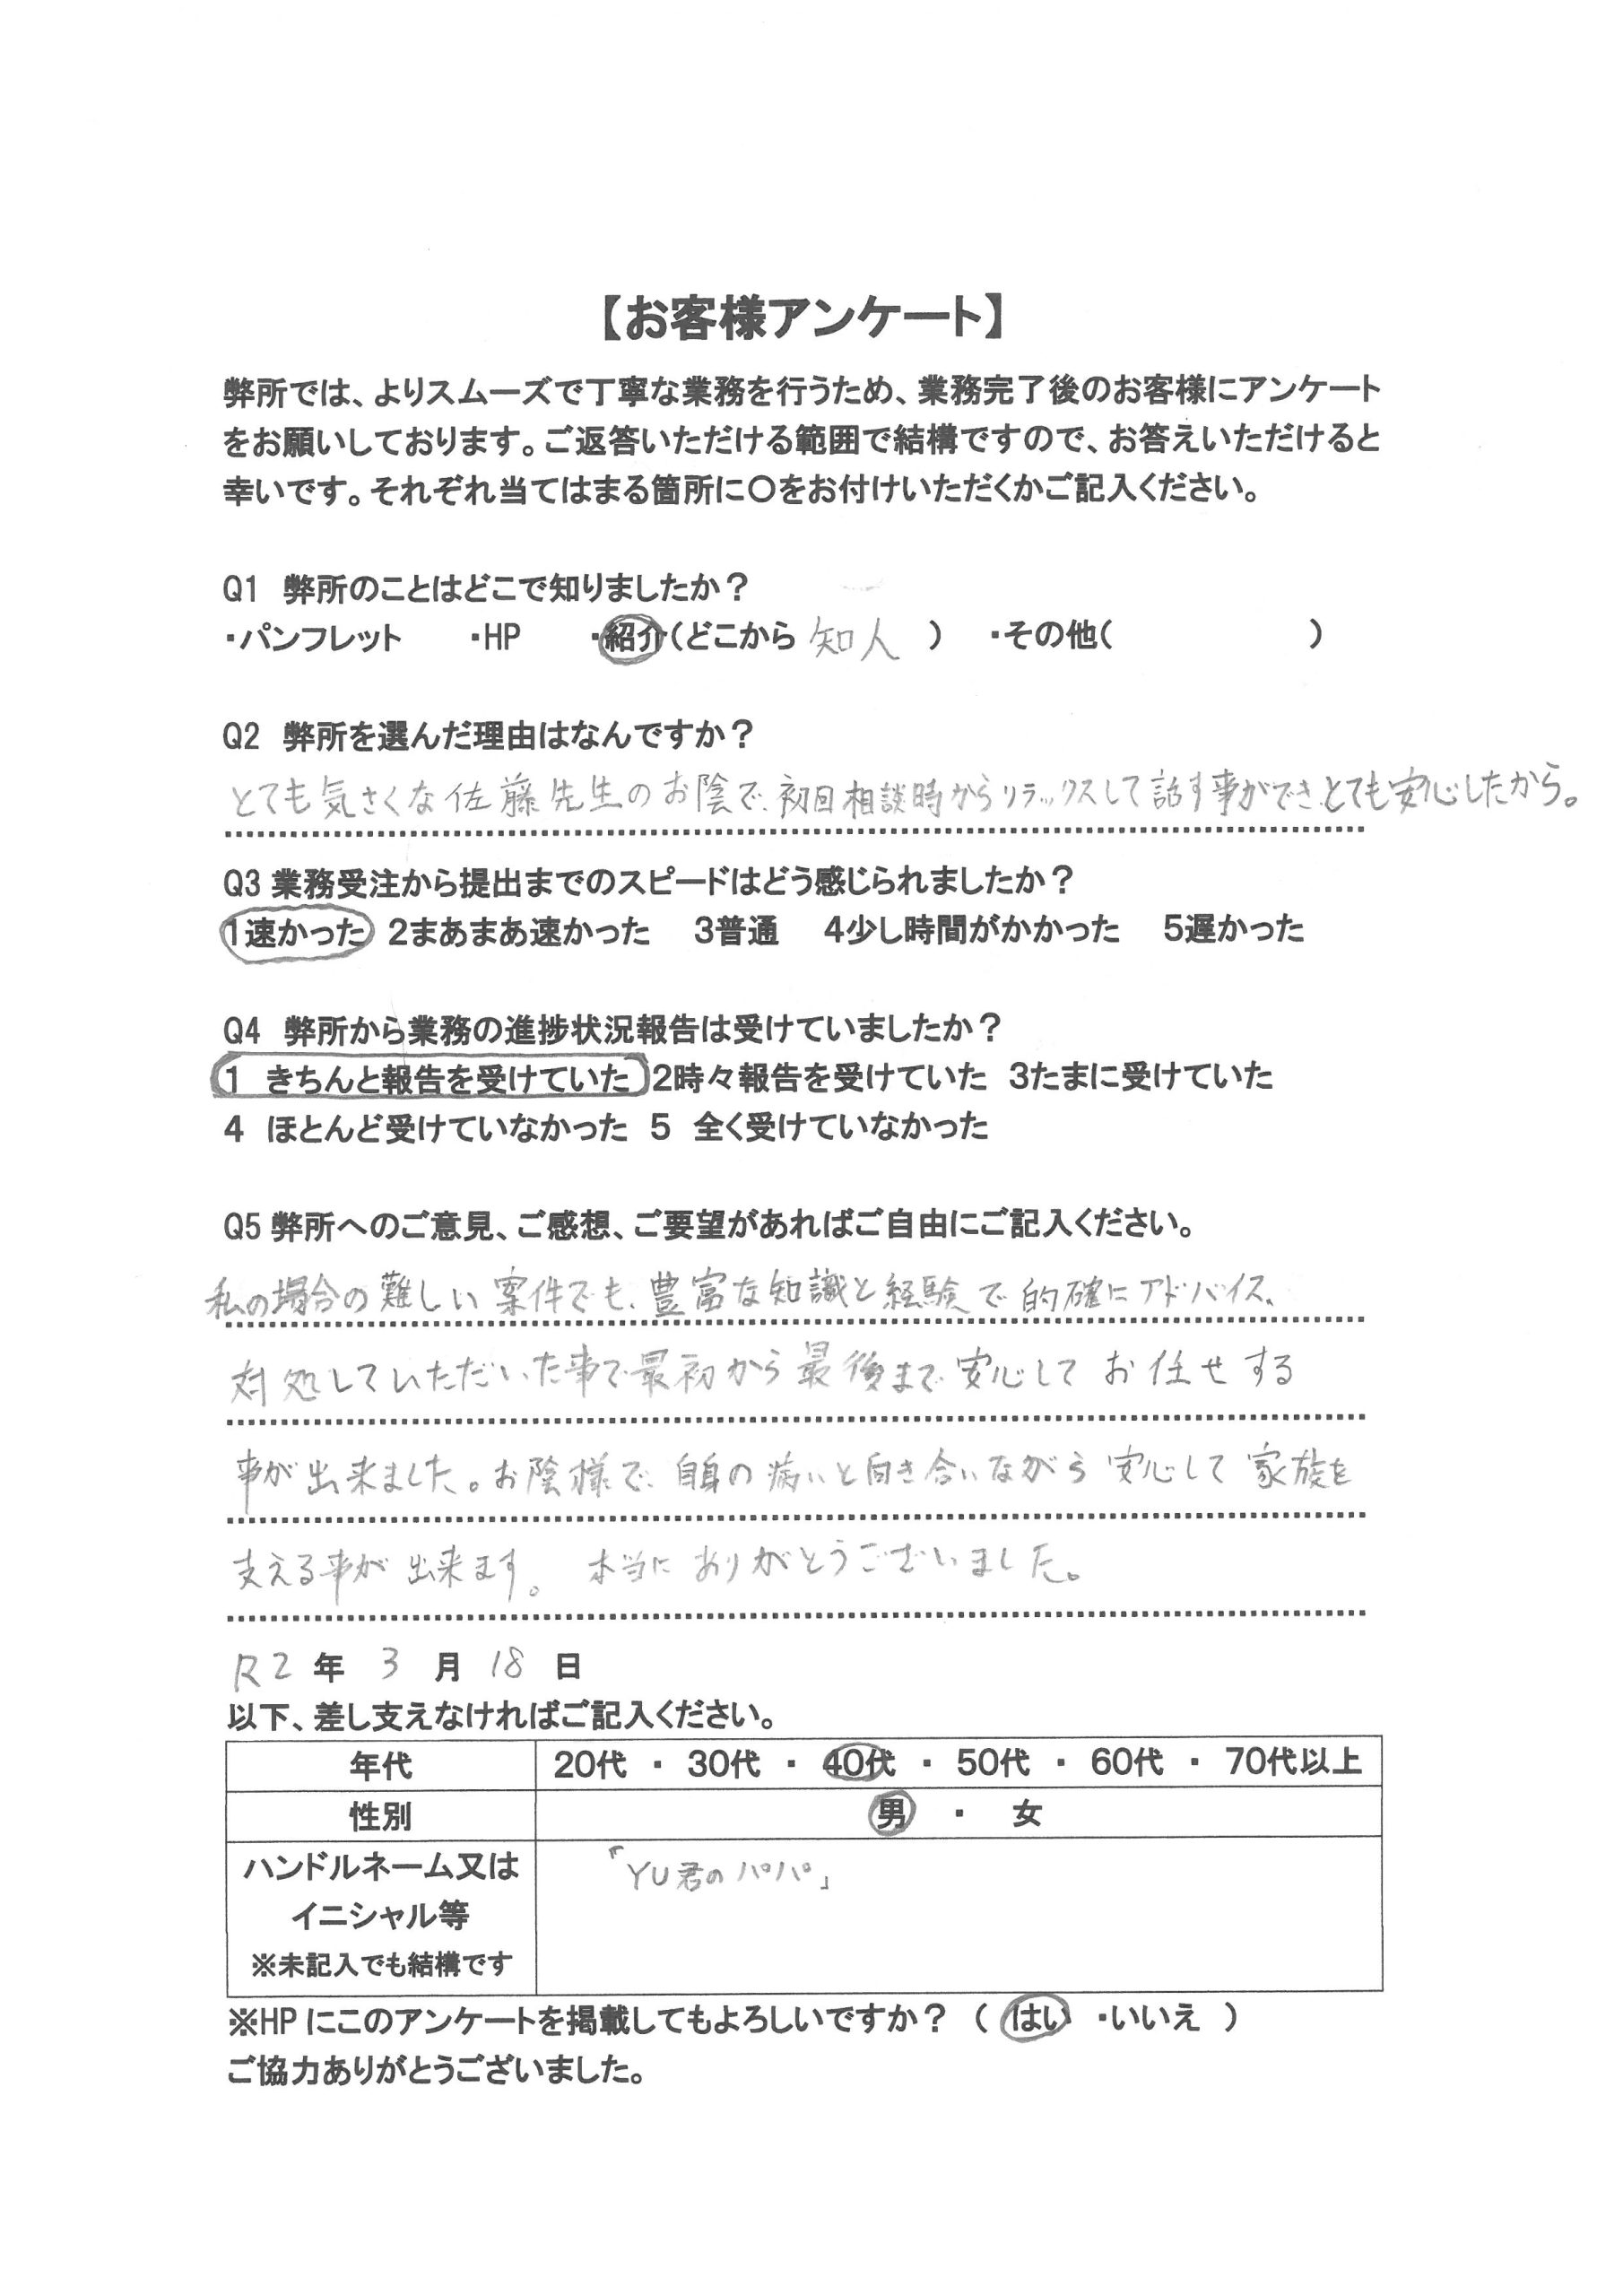 【お客様アンケート】
弊所では、よりスムーズで丁寧な業務を行うため、業務完了後のお客様にアンケート
をお願いしております。ご返答いただける範囲で結構ですので、お答えいただけると
幸いです。それぞれ当てはまる箇所に○をお付けいただくかご記入ください。
Q1 弊所のことはどこで知りましたか？
・パンフレット ・HP ・紹介（どこから 知人 ） ・その他（ ）
Q2 弊所を選んだ理由はなんですか？
とても気さくな佐藤先生のお陰で、初回相談時からリラックスして話す事ができ、とても安心したから。
Q3 業務受注から提出までのスピードはどう感じられましたか？
1速かった 2まあまあ速かった 3普通 4少し時間がかかった 5遅かった
Q4 弊所から業務の進捗状況報告は受けていましたか？
1 きちんと報告を受けていた 2時々報告を受けていた 3たまに受けていた
4 ほとんど受けていなかった 5 全く受けていなかった
Q5 弊所へのご意見、ご感想、ご要望があればご自由にご記入ください。
私の場合の難しい案件でも、豊富な知識と経験で的確にアドバイス、
対処していただいた事で最初から最後まで安心してお任せする
事が出来ました。お陰様で、自身の病いと向き合いながら安心して家族を
支える事が出来ます。 本当にありがとうございました。
R2 年 3 月 18 日
以下、差し支えなければご記入ください。
年代 20代 ・ 30代 ・ 40代 ・ 50代 ・ 60代 ・ 70代以上
性別 男 ・ 女
ハンドルネーム又は 「YU君のパパ」
イニシャル等
※未記入でも結構です
※HPにこのアンケートを掲載してもよろしいですか？ （ はい ・いいえ ）
ご協力ありがとうございました。